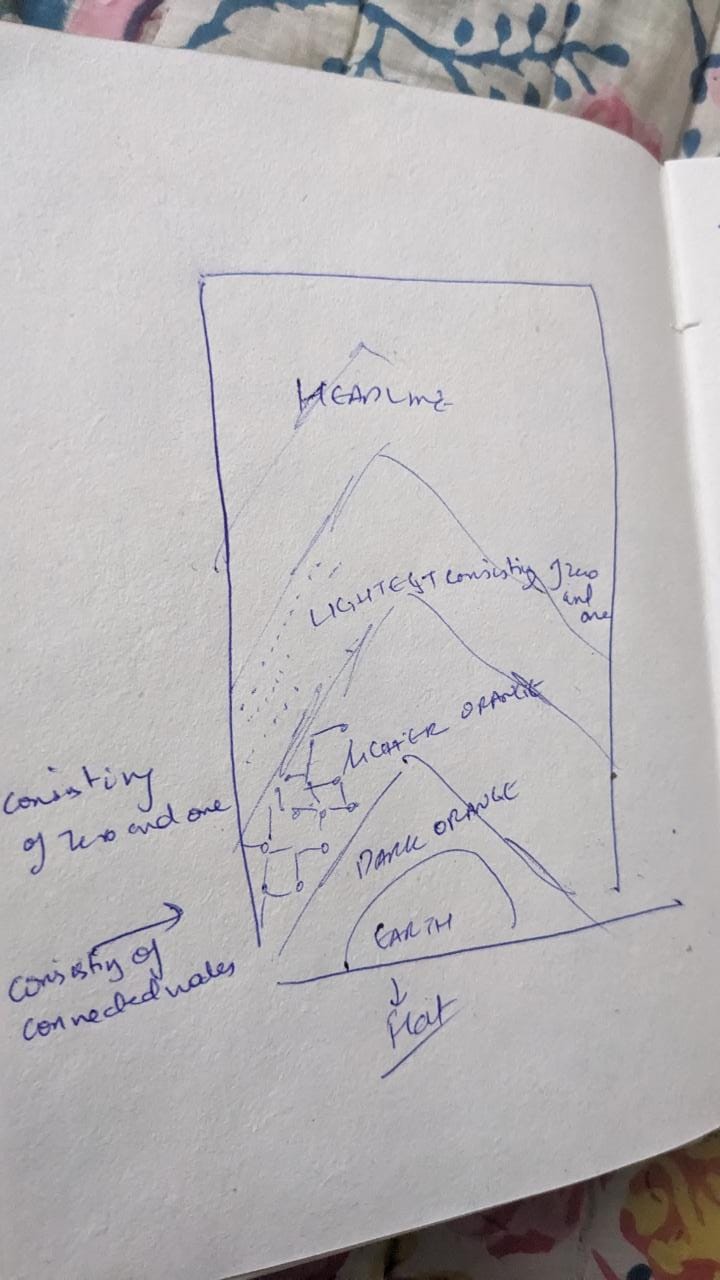 HEADLINE
LIGHTEST consisting of zero
and
one
LIGHTER ORANGE
consisting
of zero and one
DARK ORANGE
EARTH
consisting of
connected nodes
Flat